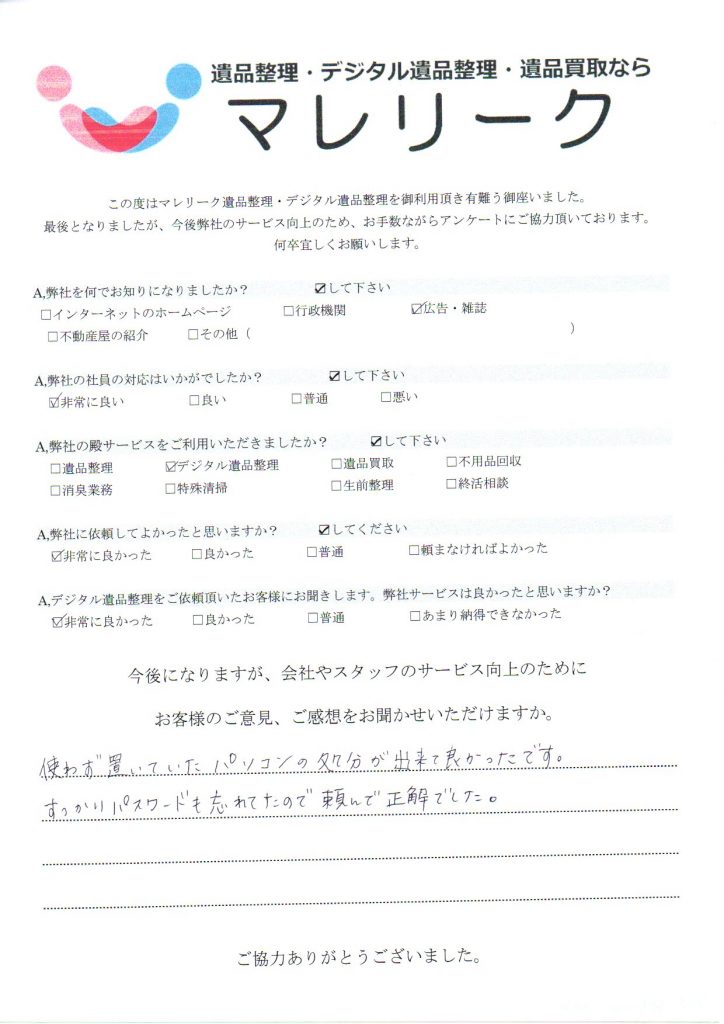 遺品整理・デジタル遺品整理・遺品買取なら
マレリーク
この度はマレリーク遺品整理・デジタル遺品整理を御利用頂き有難う御座いました。
最後となりましたが、今後弊社のサービス向上のため、お手数ながらアンケートにご協力頂いております。
何卒宜しくお願いします。
A,弊社を何でお知りになりましたか? ☑して下さい
☐インターネットのホームページ ☐行政機関 ☑広告・雑誌
☐不動産屋の紹介 ☐その他( )
A,弊社の社員の対応はいかがでしたか? ☑して下さい
☑非常に良い ☐良い ☐普通 ☐悪い
A,弊社の殿サービスをご利用いただきましたか? ☑して下さい
☐遺品整理 ☑デジタル遺品整理 ☐遺品買取 ☐不用品回収
☐消臭業務 ☐特殊清掃 ☐生前整理 ☐終活相談
A,弊社に依頼してよかったと思いますか? ☑してください
☑非常に良かった ☐良かった ☐普通 ☐頼まなければよかった
A,デジタル遺品整理をご依頼頂いたお客様にお聞きします。弊社サービスは良かったと思いますか?
☑非常に良かった ☐良かった ☐普通 ☐あまり納得できなかった
今後になりますが、会社やスタッフのサービス向上のために
お客様のご意見、ご感想をお聞かせいただけますか。
使わず置いていたパソコンの処分が出来て良かったです。
すっかりパスワードも忘れてたので頼んで正解でした。
ご協力ありがとうございました。